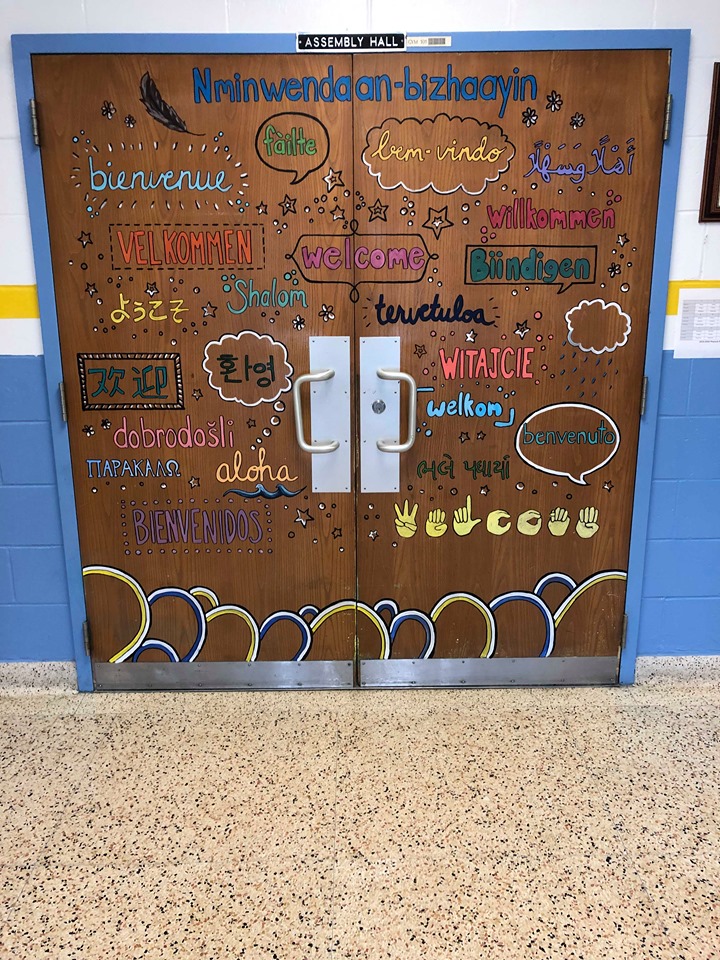 ASSEMBLY HALL
Nminwendaan-bizhaayin
fàilte
bem-vindo
bienvenue
أَهْلًا وَسَهْلًا
VELKOMMEN
willkommen
welcome
Biindigen
Shalom
ようこそ
tervetuloa
환영
WITAJCIE
欢迎
welkom
dobrodošli
benvenuto
ΠΑΡΑΚΑΛΩ
aloha
ભલે પધાર્યા
BIENVENIDOS